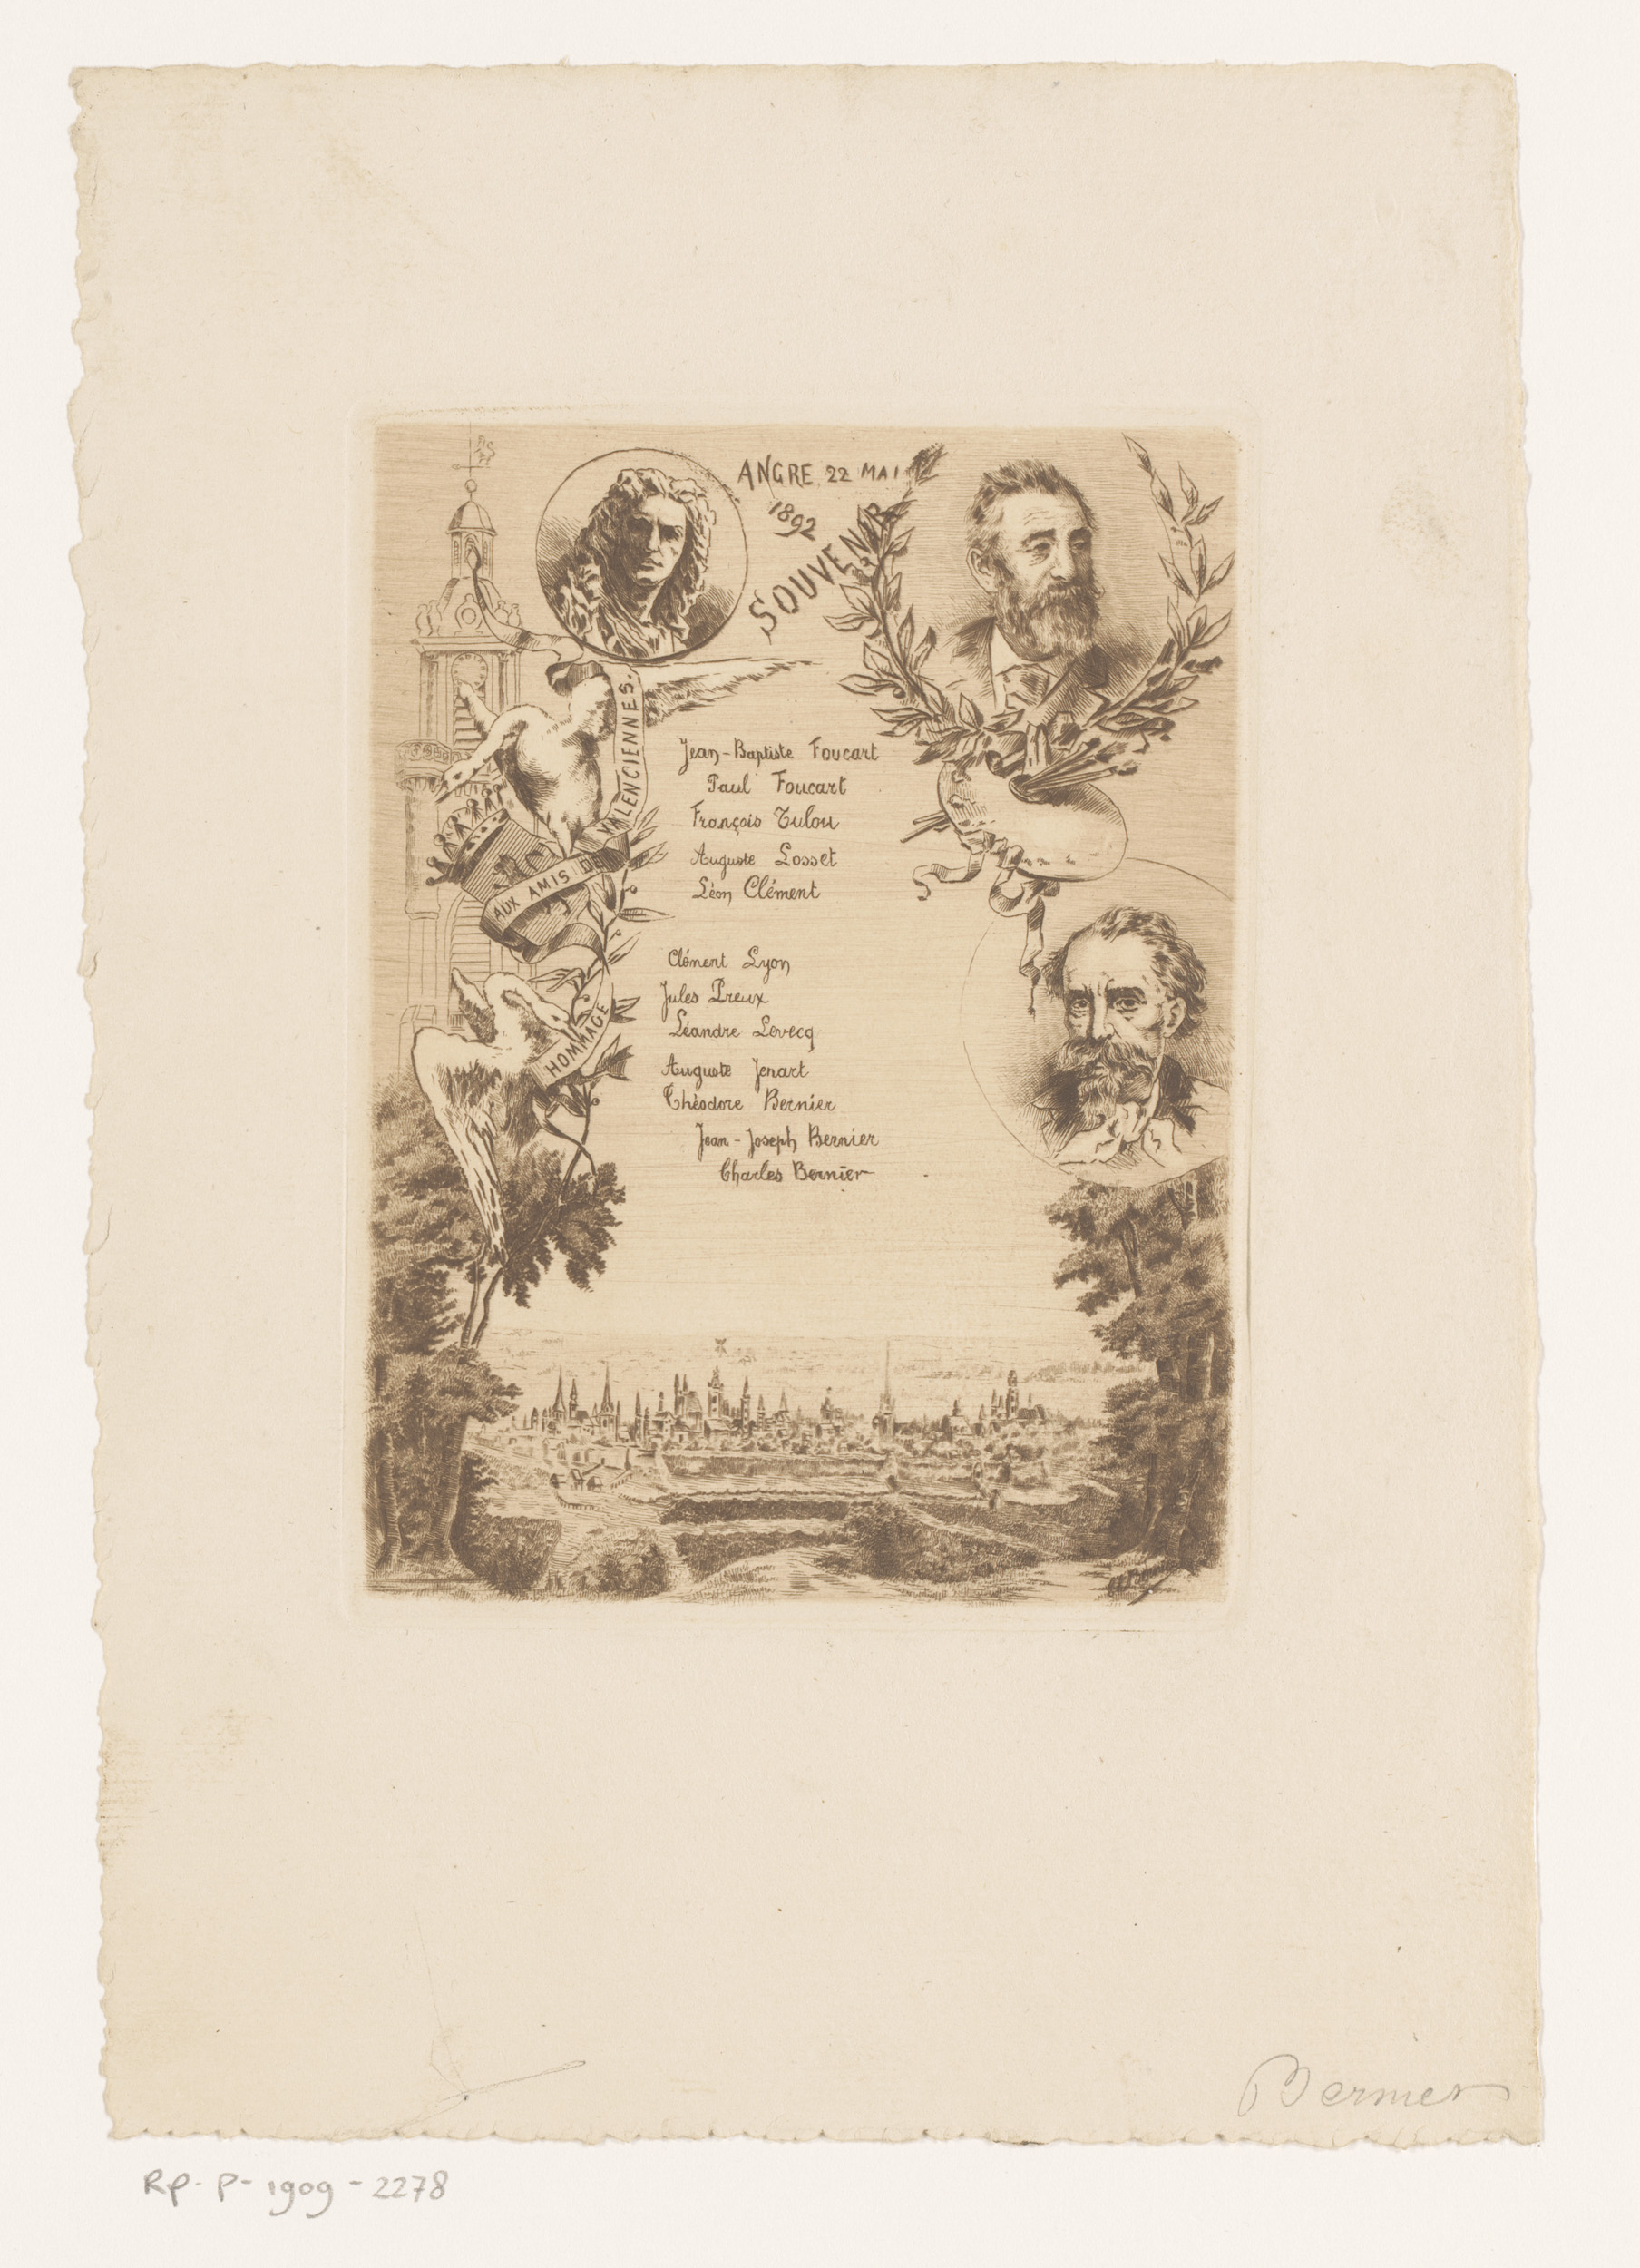 ANGRE. 22 MAI
1892
SOUVENIR
HOMMAGE
AUX AMIS DE VALENCIENNES.
Jean-Baptiste Foucart
Paul Foucart
François Tulou
Auguste Losset
Léon Clément
Clément Lyon
Jules Preux
Léandre Levecq
Auguste Jenart
Théodore Bernier
Jean-Joseph Bernier
Charles Bernier
Bernier
RP-P-1909-2278